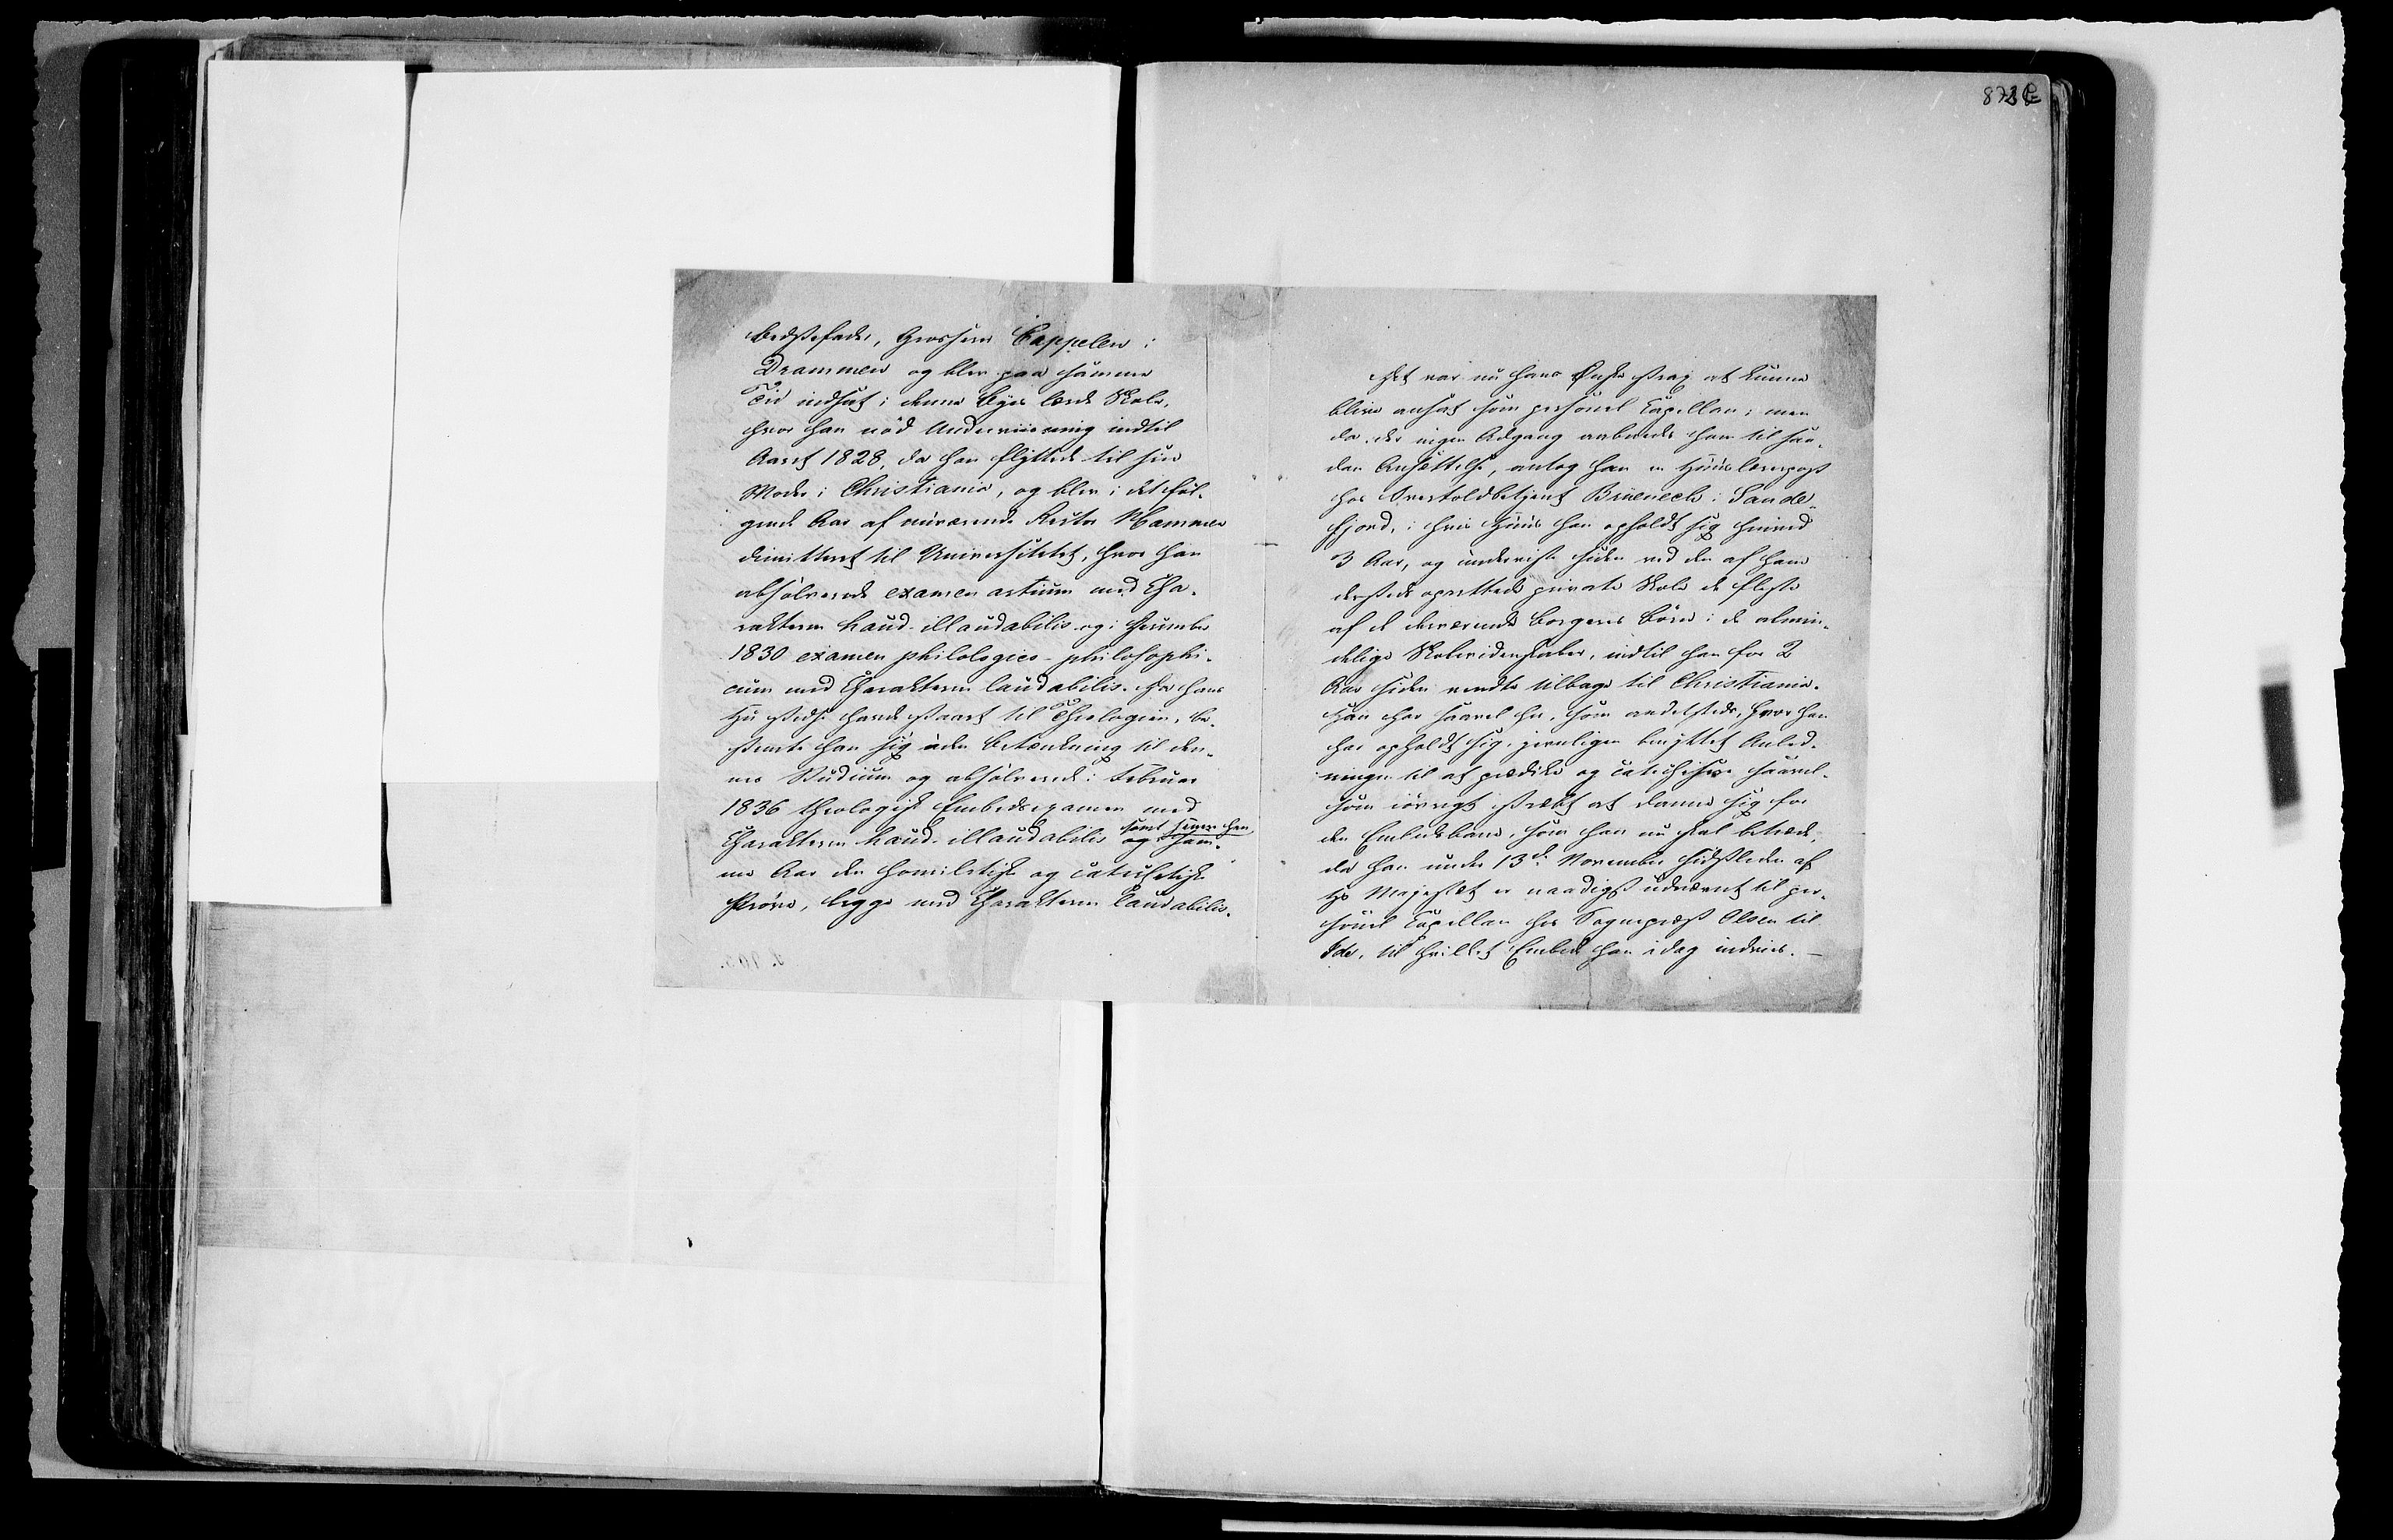 Bedstefader, Grosserer Cappelen i
Drammen og blev paa samme
Tid indsat i denne Byes lærde Skole,
hvor han nød Underviisning indtil
Aaret 1828, da han flyttede til sin
Moder i Christiania, og blev i det føl-
gende Aar af nuværende Rector Hammer
dimitteret til Universitetet, hvor han
absolverede examen artium med Cha-
rakteren haud-illaudabilis og i December
1830 examen philologico-philosophi-
cum med Charakteren laudabilis. Da hans
Hu stedse havde staaet til Theologien, be-
stemte han sig uden Betænkning til den-
ne Studium og absolverede i Februar
1836 theologisk Embedsexamen med
Charakteren haud-illaudabilis samt senere hen
og i sam-
me Aar den homiletiske og catechetiske
Prøve, begge med Charakteren laudabilis.
Det var nu hans Ønske strax at kunne
blive ansat som personel Capellan; men
da der ingen Adgang aabnede ham til saa-
dan Ansættelse, antog han en Huuslærerpost
hos Overtoldbetjent Brünech i Sande-
fjord, i hvis Huus han opholdt sig henved
3 Aar, og underviste siden ved den af ham
dersteds oprettede private Skole de fleste
af de derværende Borgeres Børn i de almin-
delige Skolevidenskaber, indtil han for 2
Aar siden vendte tilbage til Christiania.
Han har saavel her, som andetsteds, hvor han
har opholdt sig, jevnligen benyttet Anled-
ningen til at prædike og catechisere saavel-
som iøvrigt stræbt at danne sig for
den Embedsbane, som han nu skal betræde,
da han under 13de November sidstleden af
Hs Majestæt er naadigst udnævnt til per-
sonel Capellan hos Sognepræst Olsen til
Ide, til hvilket Embede han idag indvies. —